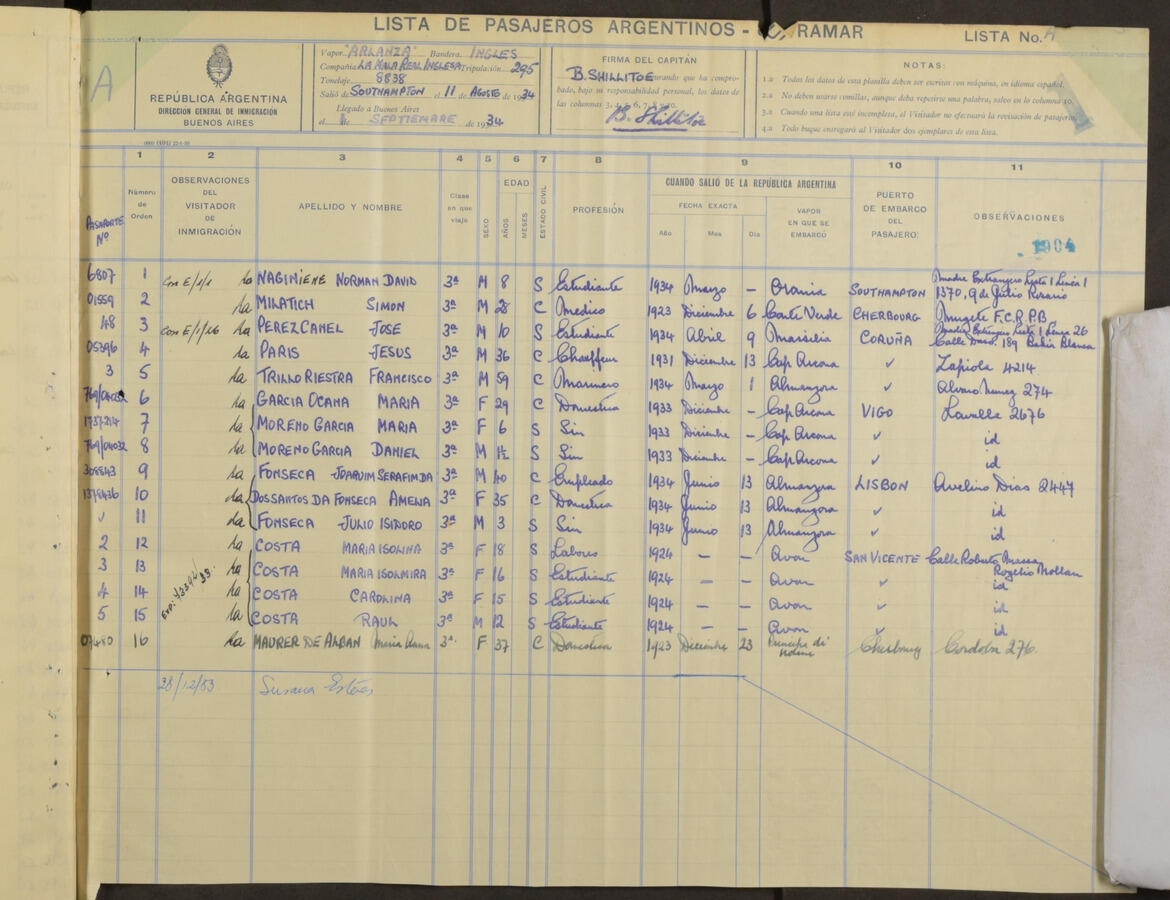 LISTA DE PASAJEROS ARGENTINOS - RAMAR
LISTA No. A
A
REPÚBLICA ARGENTINA
DIRECCIÓN GENERAL DE INMIGRACIÓN
BUENOS AIRES
Vapor "ARLANZA" Bandera INGLES
Compañía LA MALA REAL INGLESA Tripulación 295
Tonelaje 8838
Salió de SOUTHAMPTON el 11 de AGOSTO de 1934
Llegado a Buenos Aires
el 1 de SEPTIEMBRE de 1934
FIRMA DEL CAPITÁN
B. SHILLITOE jurando que ha compro-
bado, bajo su responsabilidad personal, los datos de
las columnas 3,
B. Shillitoe
NOTAS:
1.a Todos los datos de esta planilla deben ser escritos con máquina, en idioma español.
2.a No deben usarse comillas, aunque deba repetirse una palabra, salvo en la columna 10.
3.a Cuando una lista esté incompleta, el Visitador no efectuará la revisación de pasajeros
4.a Todo buque entregará al Visitador dos ejemplares de esta lista.
1 2 3 4 5 6 7 8 9 10 11
PASAPORTE Nº
Número de Orden
OBSERVACIONES DEL VISITADOR DE INMIGRACIÓN
APELLIDO Y NOMBRE
Clase en que viaja
SEXO
EDAD
AÑOS
MESES
ESTADO CIVIL
PROFESIÓN
CUANDO SALIÓ DE LA REPÚBLICA ARGENTINA
FECHA EXACTA
Año Mes Día
VAPOR EN QUE SE EMBARCÓ
PUERTO DE EMBARCO DEL PASAJERO:
OBSERVACIONES
1904
6807 1 Con E/1/1 ha NAGINIENE NORMAN DAVID 3ª M 8 S Estudiante 1934 Marzo - Orania SOUTHAMPTON Madre Extranjera Lista 1 Linea 1
1370, 9 de Julio Rosario
01559 2 ha MILATICH SIMON 3ª M 28 C Medico 1923 Diciembre 6 Conte Verde CHERBOURG F.C.R.P.B
48 3 Con E/1/26 ha PEREZ CAHEL JOSE 3ª M 10 S Estudiante 1934 Abril 9 Massilia CORUÑA Lista 1 Linea 26
Calle 189 Bahia Blanca
05396 4 ha PARIS JESUS 3ª M 36 C Chauffeur 1931 Diciembre 13 Cap Arcona ✓ Lapiola 4214
3 5 ha TRILLO RIESTRA FRANCISCO 3ª M 59 C Marinero 1934 Marzo 1 Almanzora ✓ Alvaro Nunez 274
6 ha GARCIA OCAMA MARIA 3ª F 29 C Domestica 1933 Diciembre - Cap Arcona VIGO Lavalle 2676
7 ha MORENO GARCIA MARIA F 6 S Sin 1933 Diciembre - Cap Arcona ✓ id
769/04032 8 ha MORENO GARCIA DANIEL 3ª M 1½ S Sin 1933 Diciembre - Cap Arcona ✓ id
308843 9 ha FONSECA JOAQUIM SERAFIM DA 3ª M 40 C Empleado 1934 Junio 13 Almanzora LISBON Avelino Dias 2447
1378436 10 ha DOSSANTOS DA FONSECA AMELIA 3ª F 35 C Domestica 1934 Junio 13 Almanzora ✓ id
✓ 11 ha FONSECA JULIO ISIDRO 3ª M 3 S Sin 1934 Junio 13 Almanzora ✓ id
2 12 ha COSTA MARIA ISOLINA 3ª F 18 S Labores 1924 - - Avon SAN VICENTE Calle Roberto
3 13 ha COSTA MARIA ISOLMIRA 3ª F 16 S Estudiante 1924 - - Avon ✓ Rogelio
id
4 14 ha COSTA CAROLINA 3ª F 15 S Estudiante 1924 - - Avon ✓ id
5 15 ha COSTA RAUL 3ª M 12 S Estudiante 1924 - - Avon ✓ id
16 ha MAURER DE ALBAN Maria Anna 3ª F 37 C Domestica 1923 Diciembre 23 Principe di Udine Cherburg Cordoba 276
28/12/53 Susana Esteves